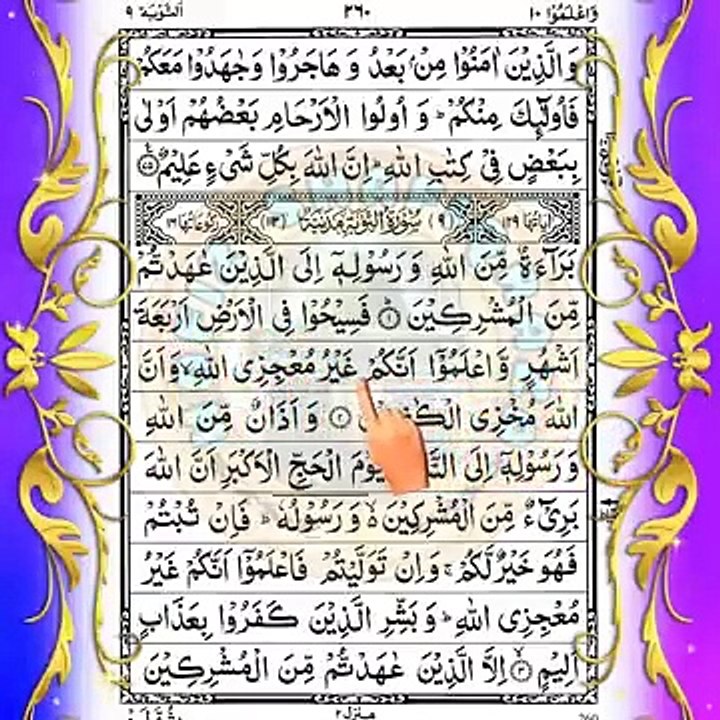 وَاعْلَمُوْٓا ١٠ ٢٦٠ اَلتَّوْبَة ٩
وَالَّذِيْنَ اٰمَنُوْا مِنْۢ بَعْدُ وَ هَاجَرُوْا وَجٰهَدُوْا مَعَكُمْ
فَاُولٰٓئِكَ مِنْكُمْ ؕ وَ اُولُوا الْاَرْحَامِ بَعْضُهُمْ اَوْلٰى
بِبَعْضٍ فِيْ كِتٰبِ اللّٰهِ ؕ اِنَّ اللّٰهَ بِكُلِّ شَيْءٍ عَلِيْمٌ ۝٧٥
اٰيَاتُهَا ١٢٩ (٩) سُوْرَةُ التَّوْبَةِ مَدَنِيَّةٌ (١١٣) رُكُوْعَاتُهَا ١٦
بَرَآءَةٌ مِّنَ اللّٰهِ وَ رَسُوْلِهٖٓ اِلَى الَّذِيْنَ عٰهَدْتُّمْ
مِّنَ الْمُشْرِكِيْنَ ۝١ فَسِيْحُوْا فِي الْاَرْضِ اَرْبَعَةَ
اَشْهُرٍ وَّ اعْلَمُوْٓا اَنَّكُمْ غَيْرُ مُعْجِزِي اللّٰهِ ۙ وَ اَنَّ
اللّٰهَ مُخْزِي ۝٢ وَ اَذَانٌ مِّنَ اللّٰهِ
وَ رَسُوْلِهٖٓ اِلَى يَوْمَ الْحَجِّ الْاَكْبَرِ اَنَّ اللّٰهَ
بَرِيْٓءٌ مِّنَ الْمُشْرِكِيْنَ ۙ۬ وَ رَسُوْلُهٗ ؕ فَاِنْ تُبْتُمْ
فَهُوَ خَيْرٌ لَّكُمْ ۚ وَ اِنْ تَوَلَّيْتُمْ فَاعْلَمُوْٓا اَنَّكُمْ غَيْرُ
مُعْجِزِي اللّٰهِ ؕ وَ بَشِّرِ الَّذِيْنَ كَفَرُوْا بِعَذَابٍ
اَلِيْمٍ ۝٣ اِلَّا الَّذِيْنَ عٰهَدْتُّمْ مِّنَ الْمُشْرِكِيْنَ
مَنْزِل ٢